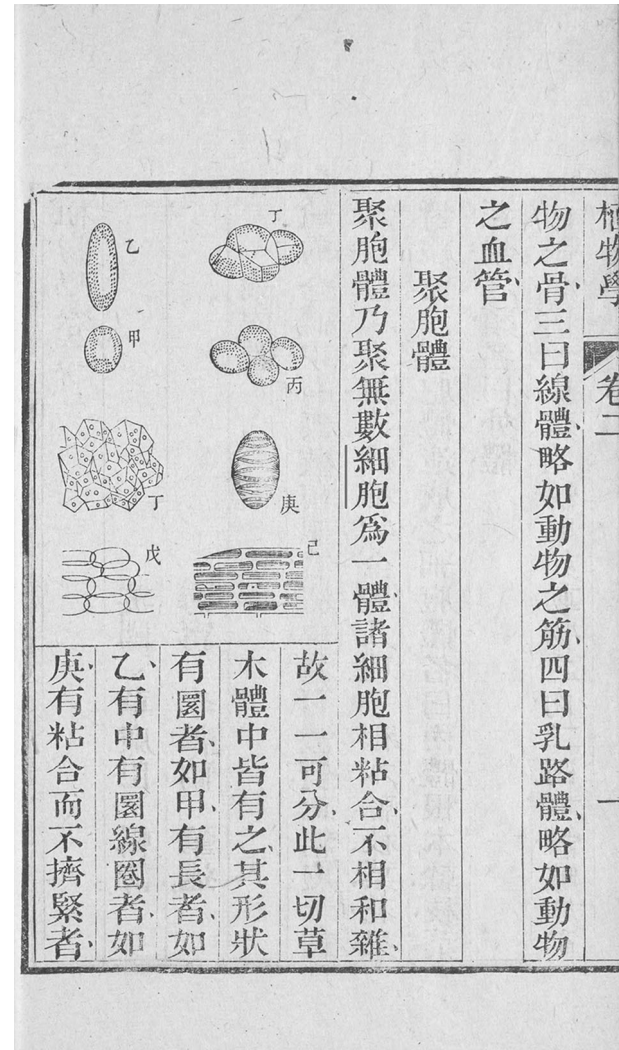 植物學 卷二 一
物之骨三曰線體略如動物之筋四曰乳路體略如動物
之血管
聚胞體
聚胞體乃聚無數細胞爲一體諸細胞相粘合不相和雜
故一一可分此一切草
木體中皆有之其形狀
有圜者如甲有長者如
乙有中有圜線圈者如
庚有粘合而不擠緊者
丁
乙
甲
丙
庚
丁
己
戊